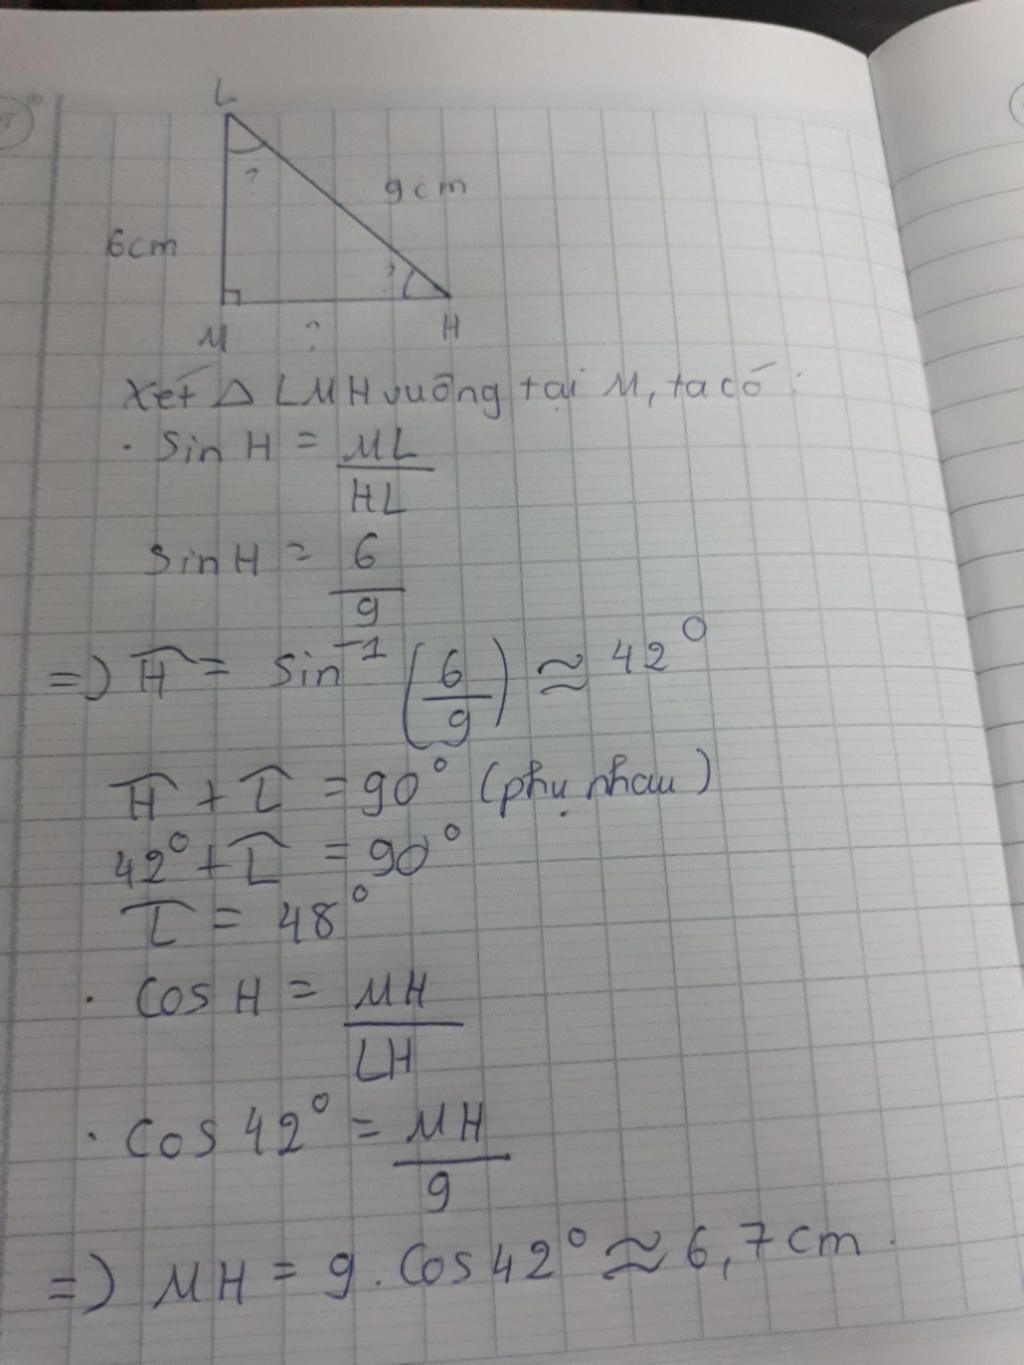 L
?
9cm
6cm
?
M
?
H
Xét Δ LMH vuông tại M, ta có :
· Sin H = ML
HL
Sin H = 6
9
=) Ĥ = Sin⁻¹ (6/9) ≈ 42°
Ĥ + L̂ = 90° (phụ nhau)
42° + L̂ = 90°
L̂ = 48°
· Cos H = MH
LH
· Cos 42° = MH
9
=) MH = 9 . Cos 42° ≈ 6,7 cm .